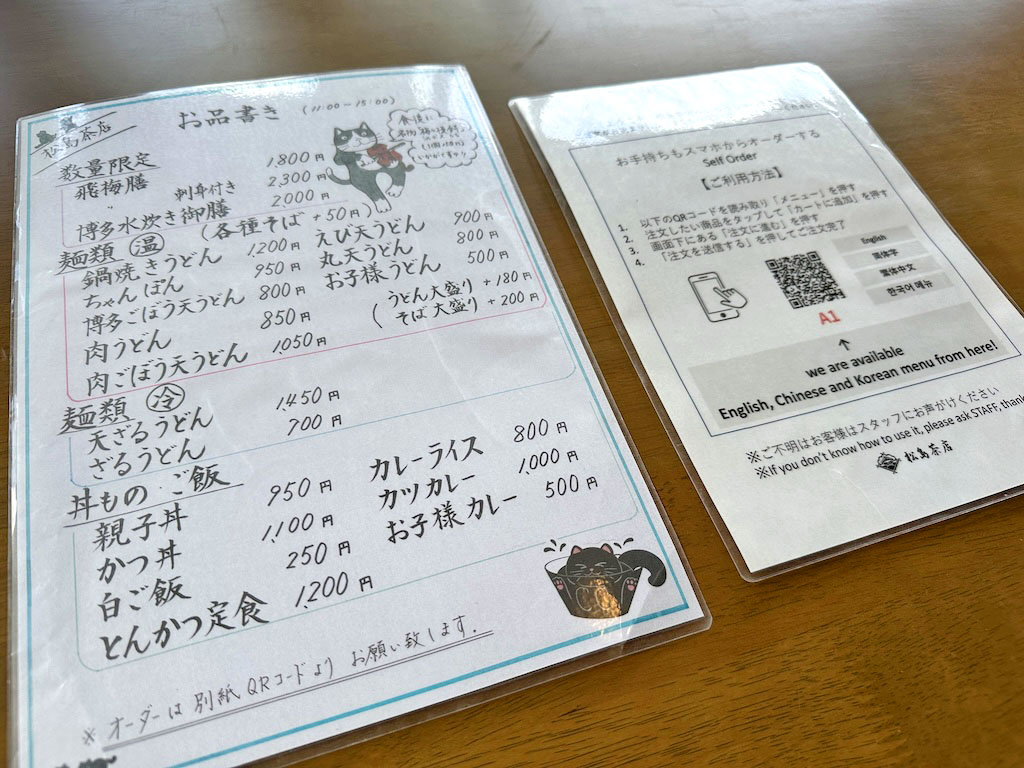 松島茶店
お品書き (11:00-15:00)
食後に
いかがですか
数量限定
飛梅膳 1,800円
〃 刺身付き 2,300円
博多水炊き御膳 2000円
麺類 温 (各種そば +50円)
鍋焼きうどん 1,200円
ちゃんぽん 950円
博多ごぼう天うどん 800円
肉うどん 850円
肉ごぼう天うどん 1,050円
えび天うどん 900円
丸天うどん 800円
お子様うどん 500円
(うどん大盛り +180円
そば大盛り +200円
麺類 冷
天ざるうどん 1,450円
ざるうどん 700円
丼もの ご飯
親子丼 950円
かつ丼 1,100円
白ご飯 250円
とんかつ定食 1,200円
カレーライス 800円
カツカレー 1,000円
お子様カレー 500円
※オーダーは別紙QRコードよりお願い致します.
お手持ちもスマホからオーダーする
Self Order
【ご利用方法】
1. 以下のQRコードを読み取り「メニュー」を押す
2. 注文したい商品をタップして「カートに追加」を押す
3. 画面下にある「注文に進む」を押す
4. 「注文を送信する」を押してご注文完了
English
简体字
繁体中文
한국어 메뉴
A1
↑
we are available
English, Chinese and Korean menu from here!
※ご不明はお客様はスタッフにお声がけください
※If you don't know how to use it, please ask STAFF, thank
松島茶店